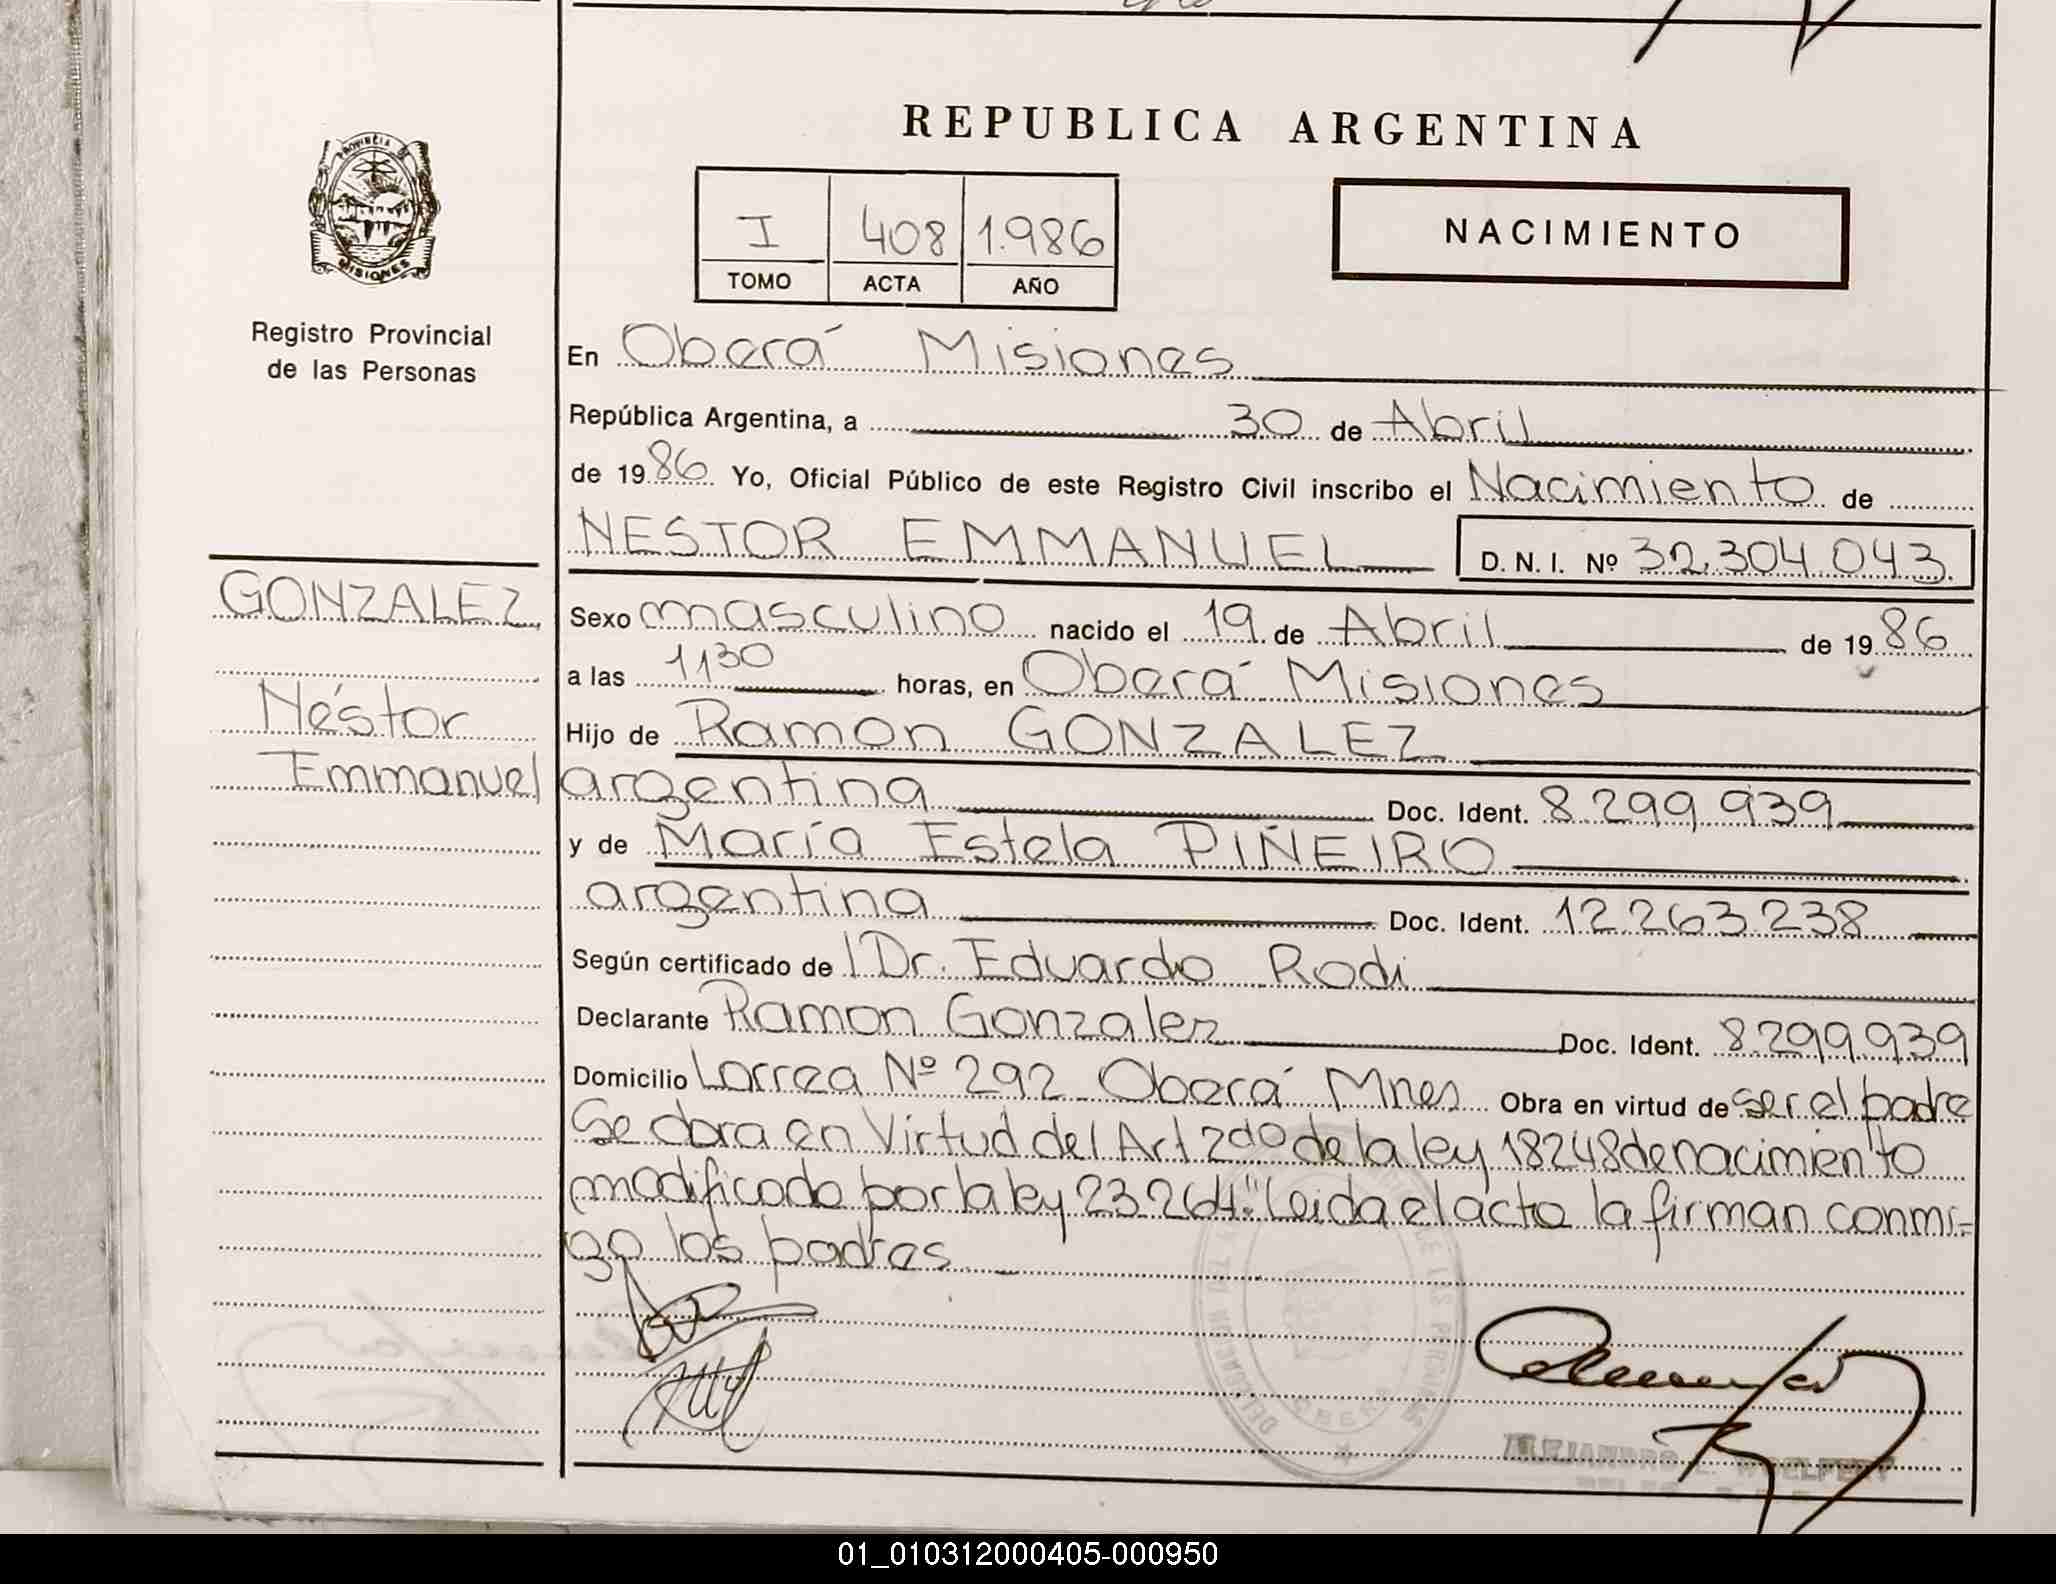 REPUBLICA ARGENTINA
PROVINCIA DE
MISIONES
Registro Provincial
de las Personas
I 408 1.986
TOMO ACTA AÑO
NACIMIENTO
En Oberá Misiones
República Argentina, a 30 de Abril
de 1986 Yo, Oficial Público de este Registro Civil inscribo el Nacimiento de
NESTOR EMMANUEL D. N. I. Nº 32.304.043
GONZALEZ
Néstor
Emmanuel
Sexo masculino nacido el 19 de Abril de 1986
a las 1130 horas, en Oberá Misiones
Hijo de Ramon GONZALEZ
argentina Doc. Ident. 8.299.939
y de María Estela PIÑEIRO
argentina Doc. Ident. 12.263.238
Según certificado de Dr. Eduardo Rodi
Declarante Ramon Gonzalez Doc. Ident. 8.299.939
Domicilio Larrea Nº 292 Oberá Mnes Obra en virtud de ser el padre
Se obra en Virtud del Art 2do de la ley 18248 de nacimiento
modificado por la ley 23.264." Leida el acta la firman conmi-
go los padres
ALEJANDRO E. WOELFERT
01_010312000405-000950